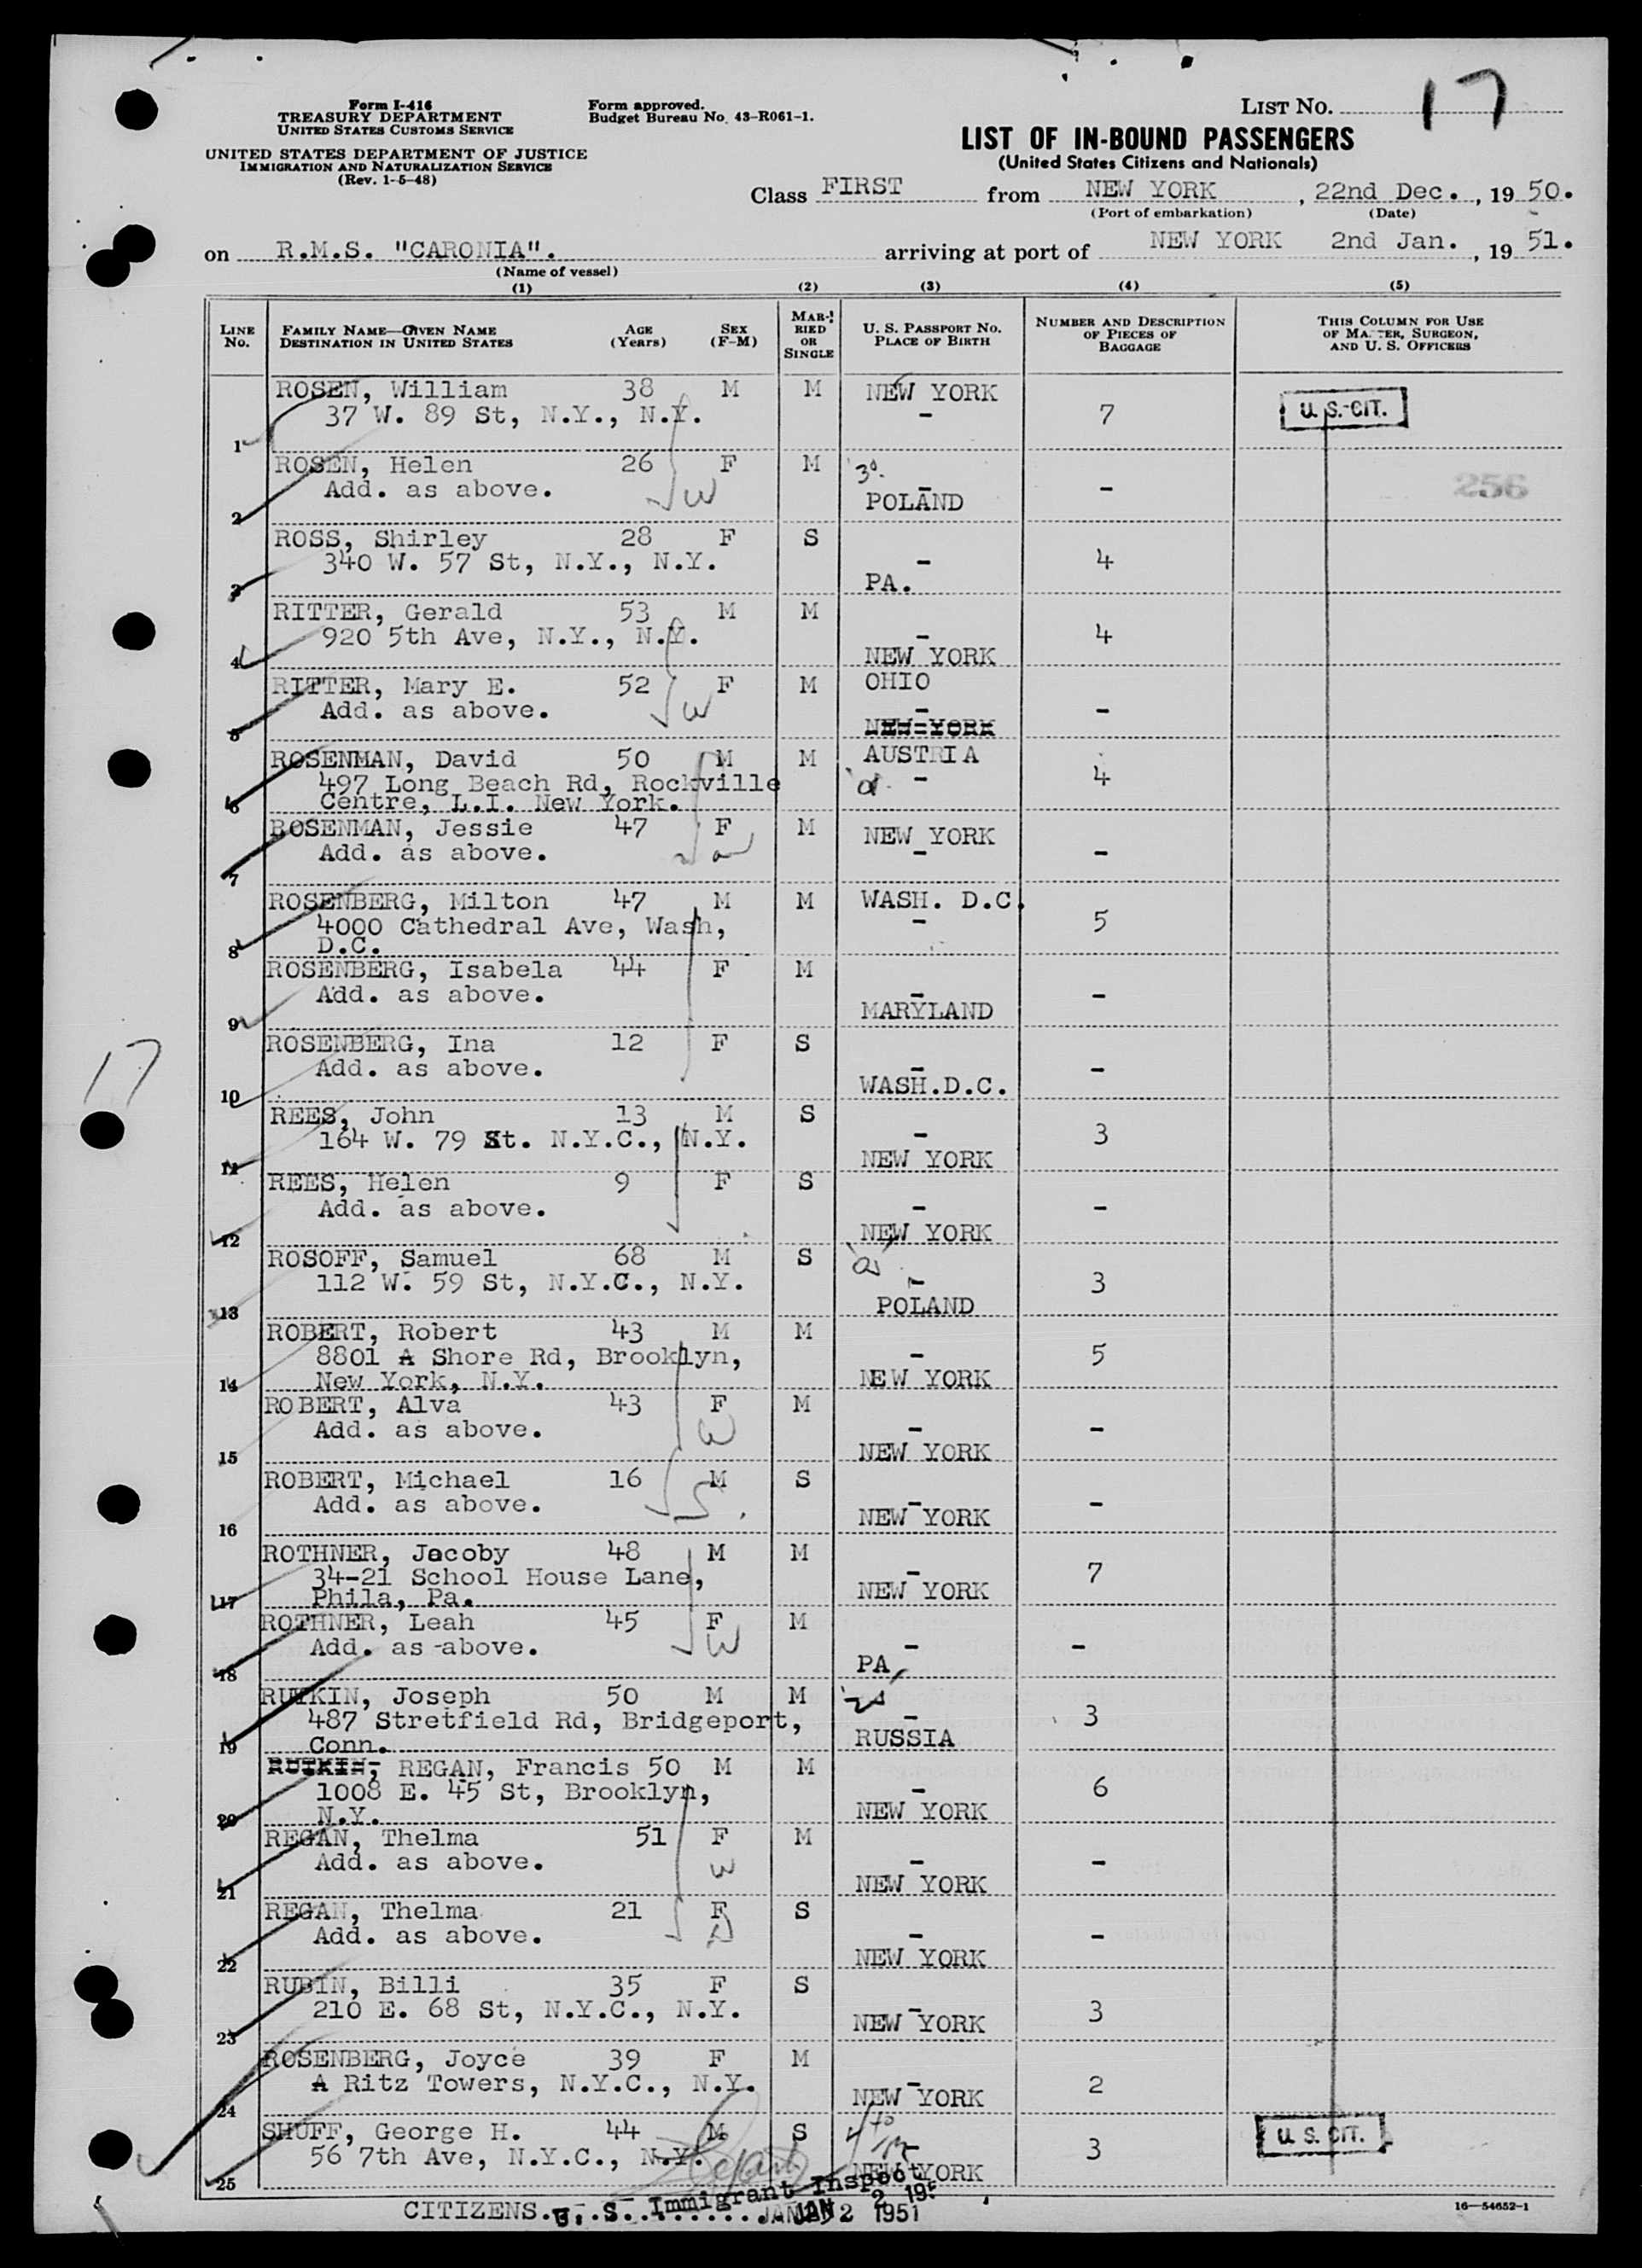 Form I-416
TREASURY DEPARTMENT
UNITED STATES CUSTOMS SERVICE
UNITED STATES DEPARTMENT OF JUSTICE
IMMIGRATION AND NATURALIZATION SERVICE
(Rev. 1-5-48)
Form approved.
Budget Bureau No. 43-R061-1.
LIST NO. 17
LIST OF IN-BOUND PASSENGERS
(United States Citizens and Nationals)
Class FIRST from NEW YORK, 22nd Dec., 19 50.
(Port of embarkation) (Date)
on R.M.S. "CARONIA". arriving at port of NEW YORK 2nd Jan., 19 51.
(Name of vessel)
(1) (2) (3) (4) (5)
LINE No. FAMILY NAME—GIVEN NAME DESTINATION IN UNITED STATES AGE (Years) SEX (F-M) MARRIED OR SINGLE U. S. PASSPORT NO. PLACE OF BIRTH NUMBER AND DESCRIPTION OF PIECES OF BAGGAGE THIS COLUMN FOR USE OF MASTER, SURGEON, AND U. S. OFFICERS
ROSEN, William 38 M M NEW YORK
37 W. 89 St, N.Y., N.Y. - 7 U. S. CIT.
1
ROSEN, Helen 26 F M
Add. as above. - - 256
2 POLAND
ROSS, Shirley 28 F S
340 W. 57 St, N.Y., N.Y. - 4
3 PA.
RITTER, Gerald 53 M M
920 5th Ave, N.Y., N.Y. - 4
4 NEW YORK
RITTER, Mary E. 52 F M OHIO
Add. as above. - -
5 NEW YORK
ROSENMAN, David 50 M M AUSTRIA
497 Long Beach Rd, Rockville - 4
6 Centre, L.I. New York.
ROSENMAN, Jessie 47 F M NEW YORK
Add. as above. - -
7
ROSENBERG, Milton 47 M M WASH. D.C.
4000 Cathedral Ave, Wash, - 5
8 D.C.
ROSENBERG, Isabela 44 F M
Add. as above. - -
9 MARYLAND
ROSENBERG, Ina 12 F S
Add. as above. - -
10 WASH.D.C.
17
REES, John 13 M S
164 W. 79 St. N.Y.C., N.Y. - 3
11 NEW YORK
REES, Helen 9 F S
Add. as above. - -
12 NEW YORK
ROSOFF, Samuel 68 M S
112 W. 59 St, N.Y.C., N.Y. - 3
13 POLAND
ROBERT, Robert 43 M M
8801 A Shore Rd, Brooklyn, - 5
14 New York, N.Y. NEW YORK
ROBERT, Alva 43 F M
Add. as above. - -
15 NEW YORK
ROBERT, Michael 16 M S
Add. as above. - -
16 NEW YORK
ROTHNER, Jacoby 48 M M
34-21 School House Lane, - 7
17 Phila, Pa. NEW YORK
ROTHNER, Leah 45 F M
Add. as above. - -
18 PA
RUTKIN, Joseph 50 M M
487 Stretfield Rd, Bridgeport, - 3
19 Conn. RUSSIA
RUTKIN, REGAN, Francis 50 M M
1008 E. 45 St, Brooklyn, - 6
20 N.Y. NEW YORK
REGAN, Thelma 51 F M
Add. as above. - -
21 NEW YORK
REGAN, Thelma 21 F S
Add. as above. - -
22 NEW YORK
RUBIN, Billi 35 F S
210 E. 68 St, N.Y.C., N.Y. - 3
23 NEW YORK
ROSENBERG, Joyce 39 F M
A Ritz Towers, N.Y.C., N.Y. - 2
24 NEW YORK
SHUFF, George H. 44 M S U. S. CIT.
56 7th Ave, N.Y.C., N.Y. - 3
25 NEW YORK
CITIZENS. U. S. Immigrant Inspect
JAN 2 1951
16-54652-1